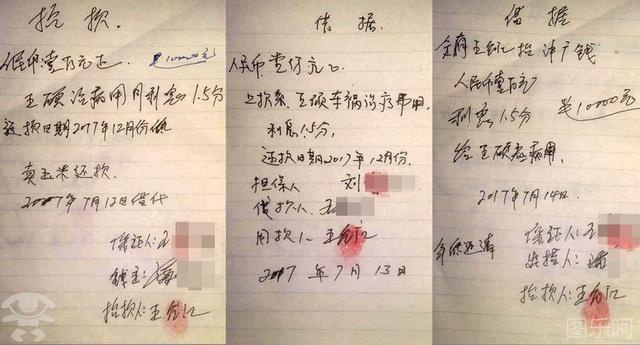 抬款.
人民币壹万元正. ¥10000元
王硕治病用月利息1.5分
还款日期2017年12月份底
卖玉米还款.
2017年7月12日
保证人:王
钱主:
抬款人:王
借据.
人民币壹仟元
上款系.王硕车祸治疗费用.
利息1.5分,
还款日期2017年12月份.
担保人 刘
借款人.王
用款人.王
2017年7月13日
借据
今有王 抬 钱
人民币壹万元
利息1.5分 ¥10000元
给王硕看病用.
2017年7月14日.
年底还清
保证人:王
出据人:
抬款人:王
图乐呵